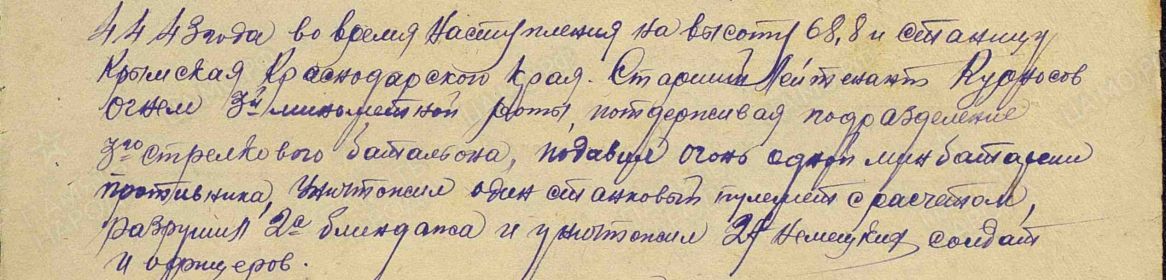 4 4 43 года во время наступления на высоту 68,8 и станицу
Крымская Краснодарского Края. Старший Лейтенант Курносов
огнем 3й минометной роты, потдерживая подразделение
3го стрелкового баталъона, подавил огонь одной минбатареи
противника, Уничтожил один станковый пулемет с расчетом,
разрушил 2а блиндажа и уничтожил немецких солдат
и офицеров.